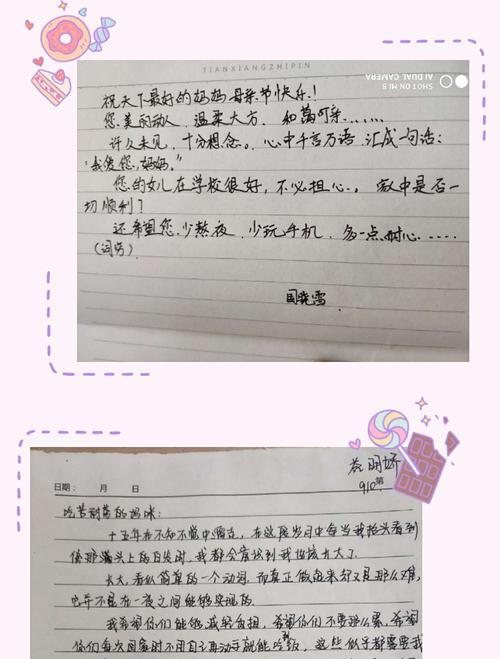 TIANXIANGZHIPIN
SHOT ON MI 8
AI DUAL CAMERA
祝天下最好的妈妈母亲节快乐!
您美丽动人、温柔大方、和蔼可亲......
许久未见,十分想念。心中千言万语,汇成一句话:
“我爱您,妈妈。”
您的女儿在学校很好,不必担心。家中是否一
切顺利?
还希望您少熬夜、少玩手机、多一点耐心......
(词穷)
国晓雪
日期: 月 日
910 第
吃苦耐劳的妈咪:
十五年在不知不觉中溜走,在这段岁月中每当我抬头看到
你那满头上的白发时,我都会意识到我也该长大了。
长大,看似简单的一个动词,而真正做起来却又是那么难,
它并不是在一夜之间能够实现的。
我希望你们能够减轻负担,希望你们不要那么累,希望
你们每次回家时不用自己再动手就能吃到饭,这些似乎都需要我